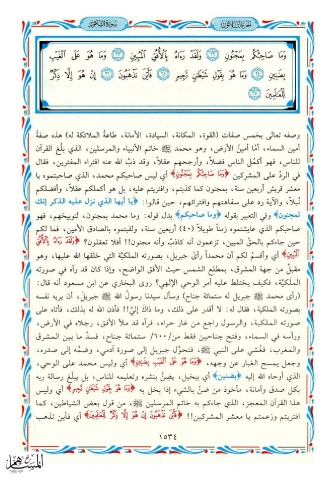 الجزء الثلاثون
سورة التكوير
وَمَا صَاحِبُكُم بِمَجْنُونٍ ﴿٢٢﴾ وَلَقَدْ رَءَاهُ بِالْأُفُقِ الْمُبِينِ ﴿٢٣﴾ وَمَا هُوَ عَلَى الْغَيْبِ
بِضَنِينٍ ﴿٢٤﴾ وَمَا هُوَ بِقَوْلِ شَيْطَٰنٍ رَّجِيمٍ ﴿٢٥﴾ فَأَيْنَ تَذْهَبُونَ ﴿٢٦﴾ إِنْ هُوَ إِلَّا ذِكْرٌ
لِّلْعَٰلَمِينَ ﴿٢٧﴾
وصفه تعالى بخمس صفات (القوة، المكانة، السيادة، الأمانة، طاعة الملائكة له) هذه صفة
أمين السماء، أمّا أمينُ الأرض، وهو محمد ﷺ خاتم الأنبياء والمرسلين، الذي بلّغ القرآن
للناس، فهو أكملُ الناس فضلاً، وأرجحهم عقلاً، وقد ذبَّ الله عنه افتراء المفترين، فقال
في الردّ على المشركين ﴿وَمَا صَاحِبُكُم بِمَجْنُونٍ﴾ أي ليس صاحبكم محمد، الذي صاحبتموه يا
معشر قريش أربعين سنة، بمجنون كما زعمتم، وافتريتم عليه، بل هو أكملكم عقلاً، وأفضلكم
نُبلاً، والآية رد على سفاهتهم وافترائهم، حين قالوا: ﴿يا أيها الذي نزل عليه الذكر إنك
لمجنون﴾ وفي التعبير بقوله ﴿وما صاحبكم﴾ بدل قوله: وما محمد بمجنون، لتوبيخهم، فهو
صاحبكم الذي عايشتموه زمناً طويلاً (٤٠) أربعين سنة، ولقبتموه بالصادق الأمين، فما لكم
حين جاءكم بالحق المبين، تزعمون أنه كاذبٌ وأنه مجنون!! أفلا تعقلون؟ ﴿وَلَقَدْ رَءَاهُ بِالْأُفُقِ
الْمُبِينِ﴾ أي وأقسمُ لكم أن محمداً رأى جبريل، بصورته الملكيّة التي خلقها الله عليها، وهو
مقبلٌ من جهة المشرق، بمطلع الشمس حيث الأفق الواضح، وإذا كان قد رآه في صورته
الملكيّة، فكيف يختلط عليه أمر الوحي الإلهي؟ روى البخاري عن ابن مسعود أنه قال:
(رأى محمد ﷺ جبريل له ستمائة جناح) وسأل سيدنا رسولُ الله ﷺ جبريلَ، أن يريه نفسه
بصورته الملكية، فقال له: لا أقدر على ذلك، وما ذاك إليّ!! فأذن الله له بذلك، فأتاه على
صورته الملكية، والرسول راجع من غار حراء، فرآه قد ملأ الأفق، رجلاه في الأرض،
ورأسه في السماء، وفتح جناحين فقط من/٦٠٠/ ستمائة جناح، فسدَّ ما بين المشرق
والمغرب، فغُشي على النبي ﷺ، فتحوّل جبريل إلى صورة آدمي، وضمّه إلى صدره،
وجعل يمسح الغبار عن وجهه، ﴿وَمَا هُوَ عَلَى الْغَيْبِ بِضَنِينٍ﴾ أي وليس محمد على الوحي،
الذي أوحاه الله إليه ﴿بضنين﴾ أي ببخيل، يضِنُّ بنشره وتعليمه للناس، بل يبلّغ رسالة ربه
بكل صدق وأمانة، مأخوذ من ضنَّ بالشيء إذا بخل به ﴿وَمَا هُوَ بِقَوْلِ شَيْطَٰنٍ رَّجِيمٍ﴾ أي وليس
هذا القرآن المعجز، الذي جاءكم به خاتم المرسلين ﷺ، من قول بعض الشياطين، كما
افتريتم وزعمتم يا معشر المشركين!! ﴿فَأَيْنَ تَذْهَبُونَ إِنْ هُوَ إِلَّا ذِكْرٌ لِّلْعَٰلَمِينَ﴾ أي فأين تذهب
١٥٣٤